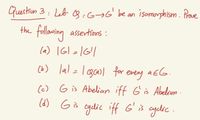 Question 3: Let φ: G→G' be an isomorphism. Prove
the following assertions:
(a) |G| = |G'|
(b) |a| = |φ(a)| for every a∈G.
(c) G is Abelian iff G' is Abelian.
(d) G is cyclic iff G' is cyclic.